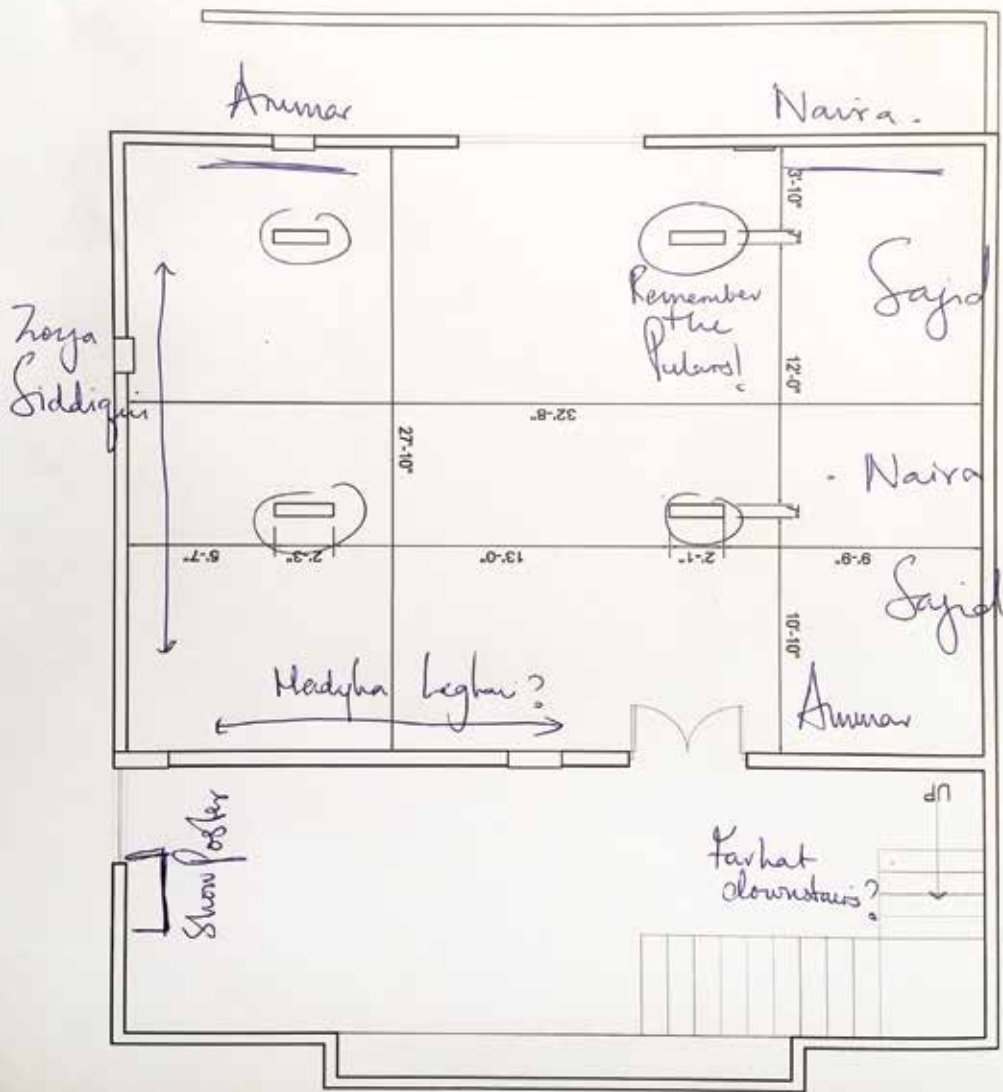 Ammar
Naira.
3'-10"
7"
Sajid
Remember
the
Pillars!
Zoya
Siddiqui
12'-0"
32'-8"
27'-10"
Naira
7"
2'-3"
13'-0"
2'-1"
9'-9"
Sajid
10'-10"
Madyha Leghari?
Ammar
Show Poster
UP
Farhat
downstairs?